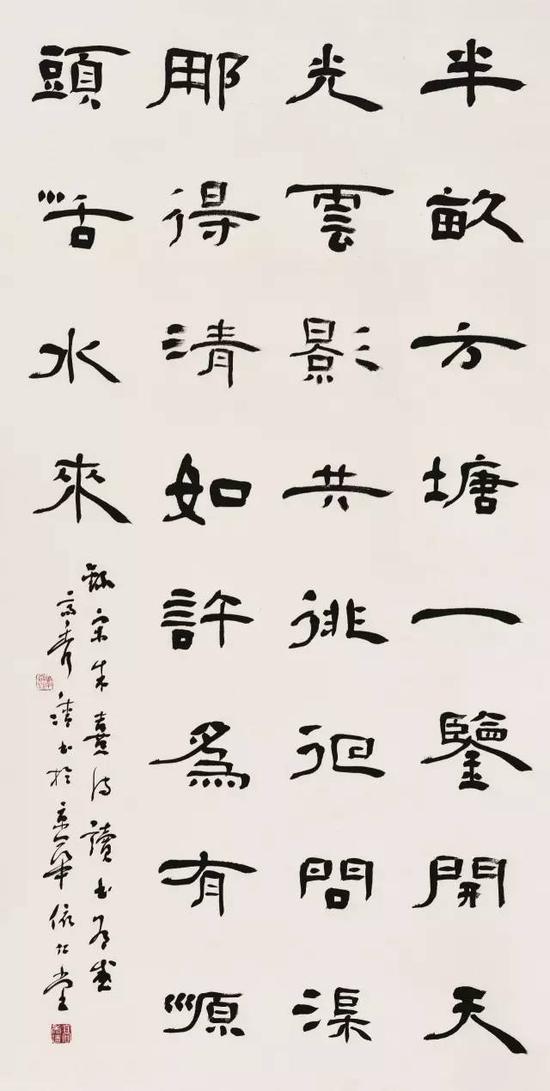 半畝方塘一鑒開天
光雲影共徘徊問渠
那得清如許爲有源
頭活水來
錄宋朱熹詩讀書有感
高秀清書於京華依仁堂